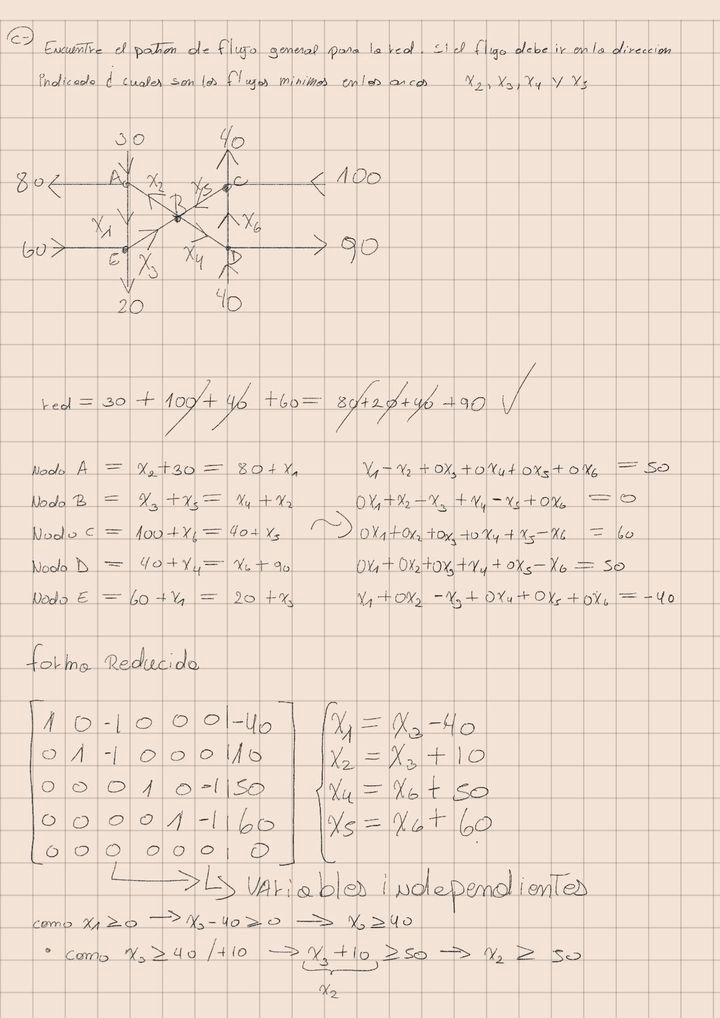 C-) Encuentre el patron de flujo general para la red. Si el flujo debe ir en la direccion
indicada ¿ cuales son los flujos minimos en los arcos x₂, x₃, x₄ y x₅
30 40
80 A x₂ x₅ C 100
B
x₁ x₆
60 E x₃ x₄ D 90
20 40
red = 30 + 100 + 40 + 60 = 80 + 20 + 40 + 90 ✓
Nodo A = x₂ + 30 = 80 + x₁ x₁ - x₂ + 0x₃ + 0x₄ + 0x₅ + 0x₆ = 50
Nodo B = x₃ + x₅ = x₄ + x₂ 0x₁ + x₂ - x₃ + x₄ - x₅ + 0x₆ = 0
Nodo C = 100 + x₆ = 40 + x₅ 0x₁ + 0x₂ + 0x₃ + 0x₄ + x₅ - x₆ = 60
Nodo D = 40 + x₄ = x₆ + 90 0x₁ + 0x₂ + 0x₃ + x₄ + 0x₅ - x₆ = 50
Nodo E = 60 + x₁ = 20 + x₃ x₁ + 0x₂ - x₃ + 0x₄ + 0x₅ + 0x₆ = -40
forma Reducida
1 0 -1 0 0 0 | -40 x₁ = x₃ - 40
0 1 -1 0 0 0 | 10 x₂ = x₃ + 10
0 0 0 1 0 -1 | 50 x₄ = x₆ + 50
0 0 0 0 1 -1 | 60 x₅ = x₆ + 60
0 0 0 0 0 0 | 0
variables independientes
como x₁ ≥ 0 → x₃ - 40 ≥ 0 → x₃ ≥ 40
• como x₃ ≥ 40 /+10 → x₃ + 10 ≥ 50 → x₂ ≥ 50
x₂